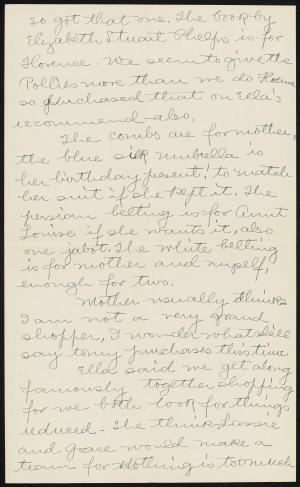 so got that one. The book by
Elizabeth Stuart Phelps is for
Florence. We seem to give the
Pollies more than we do Florence
so purchased that on Ella's
recommend- also.
The combs are for mother,
the blue silk umbrella is
her birthday present! to match
her suit if she kept it. The
persian belting is for Aunt
Louise if she wants it, also
one jabot. The white belting
is for mother and myself,
enough for two.
Mother usually thinks
I am not a very grand
shopper, I wonder what she'll
say to my purchases this time.
Ella said we get along
famously together shopping
for we both look for things
reduced - She thinks Lassie
and Grace would make a
team for nothing is too much